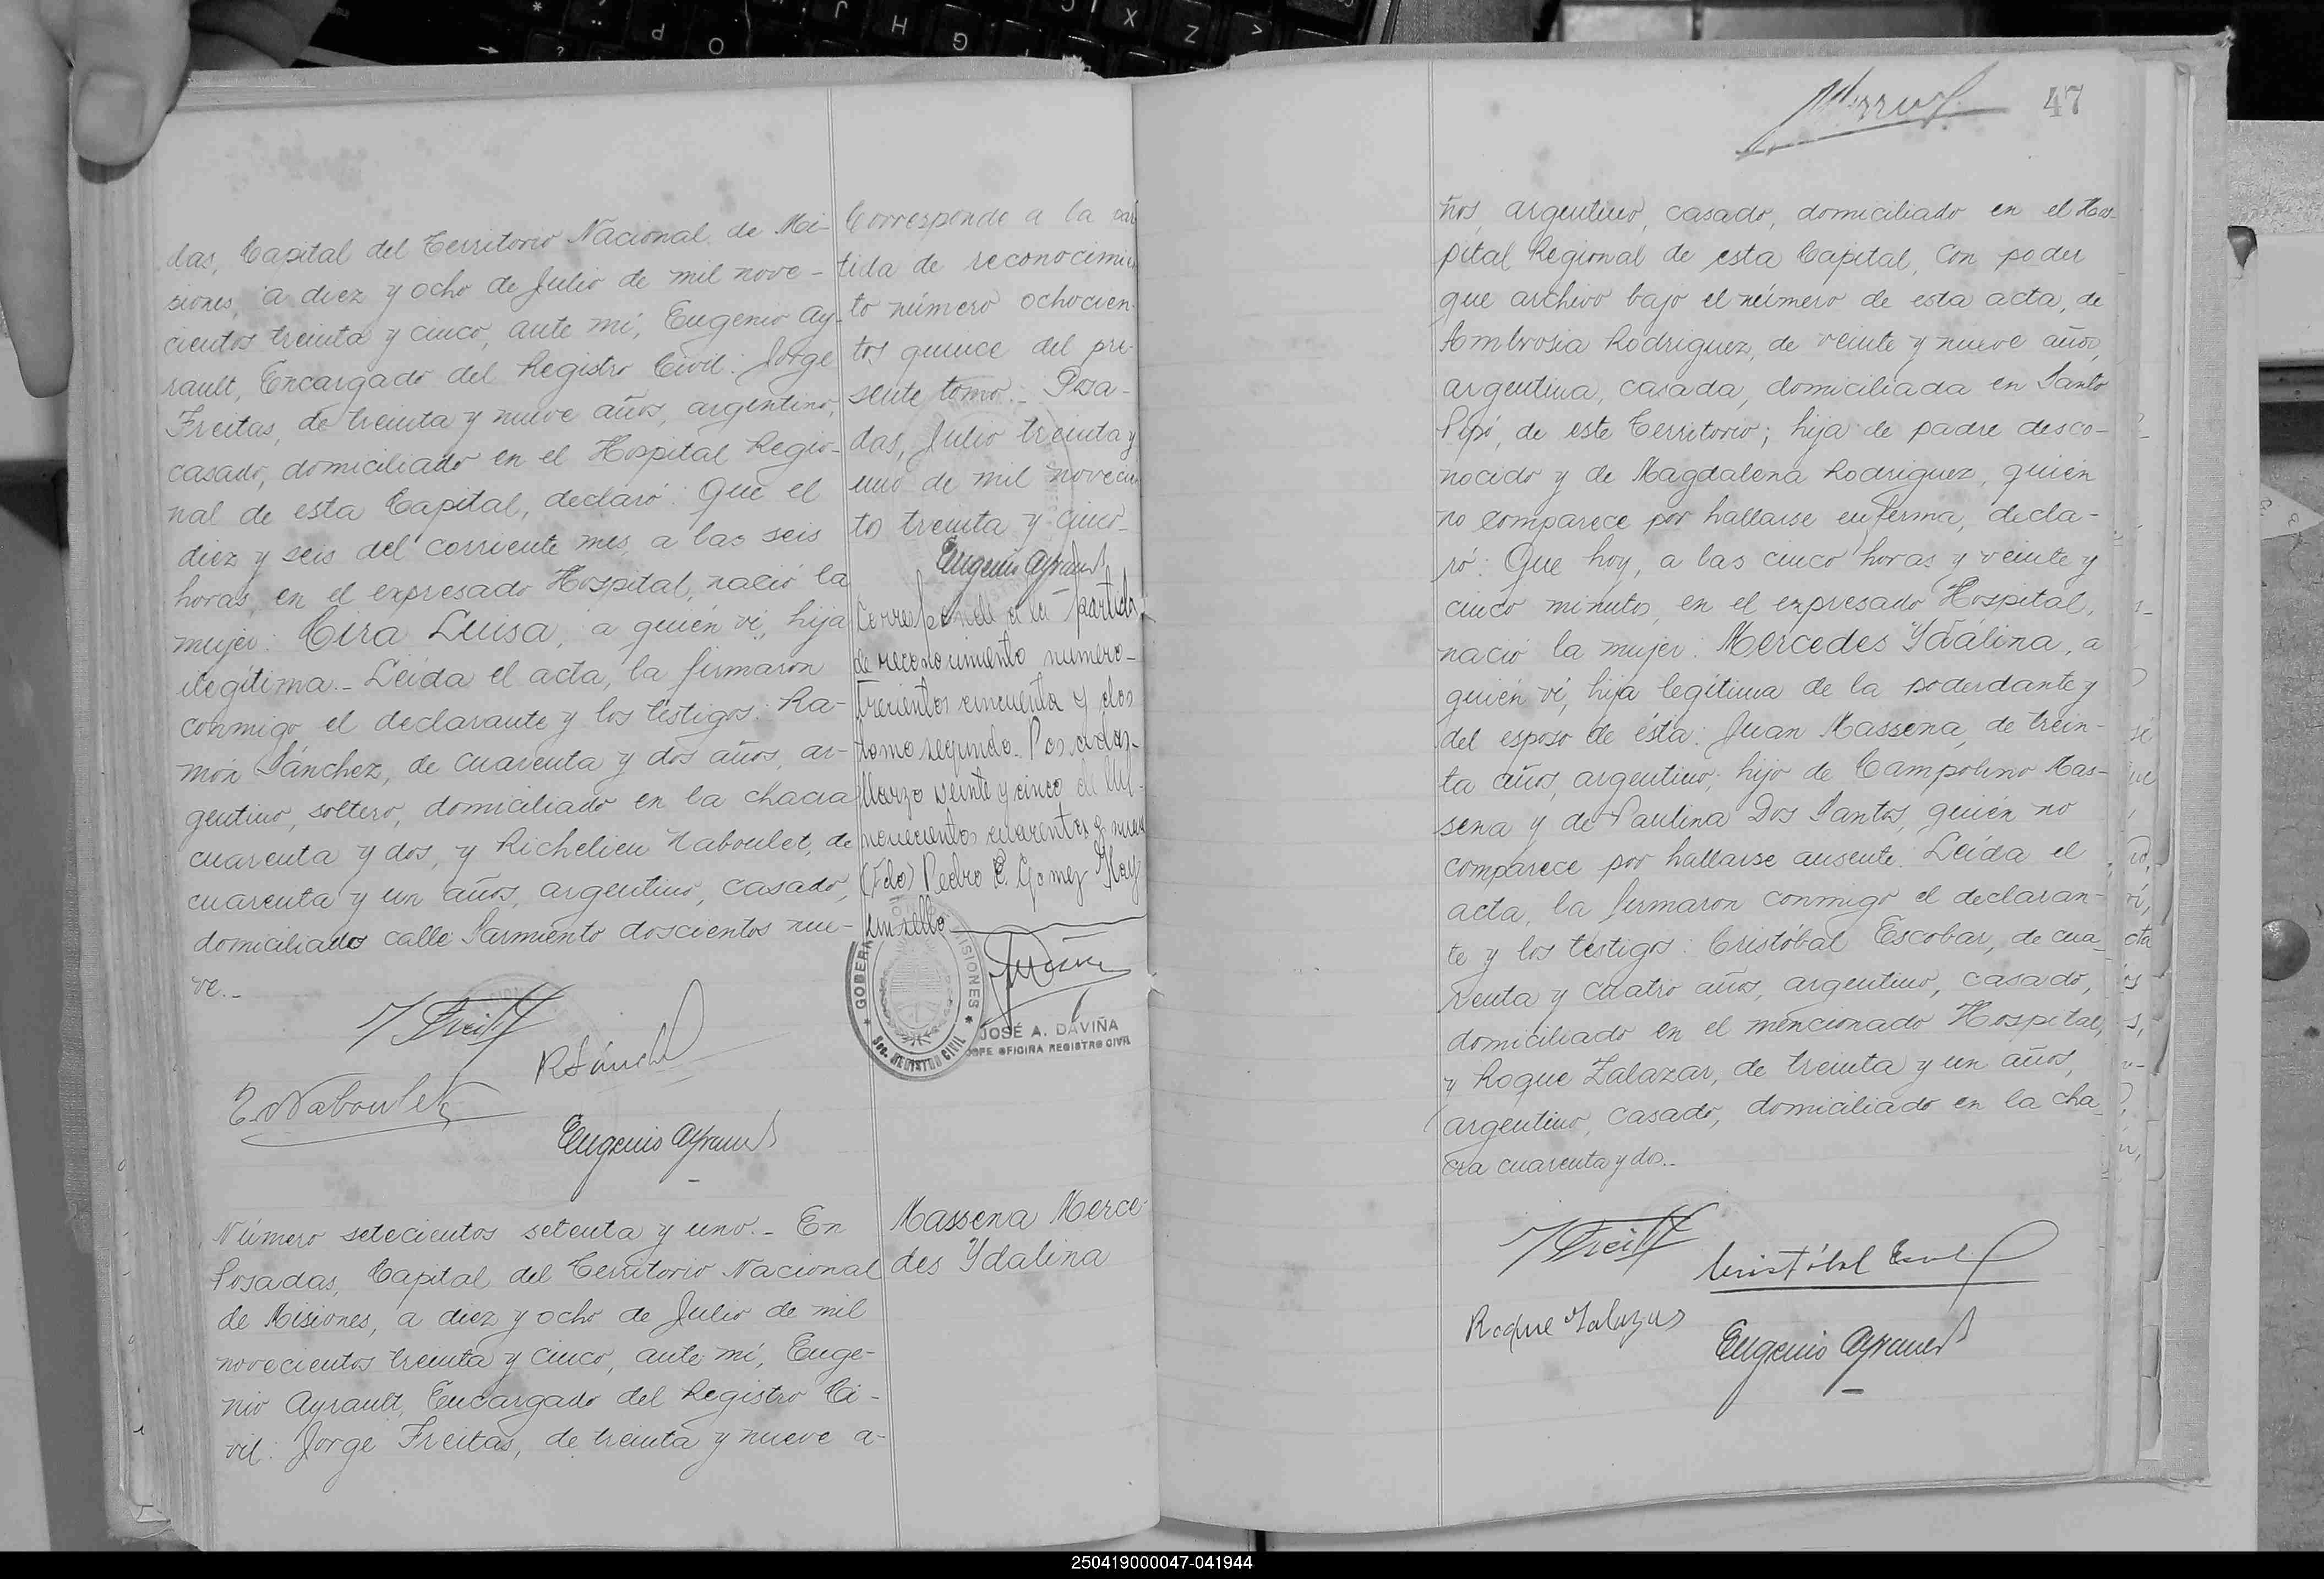 das, Capital del Territorio Nacional de Mi-
siones, a diez y ocho de Julio de mil nove-
cientos treinta y cinco, ante mí, Eugenio Ay-
rault, Encargado del Registro Civil: Jorge
Freitas, de treinta y nueve años, argentino,
casado, domiciliado en el Hospital Regio-
nal de esta Capital, declaró: Que el
diez y seis del corriente mes, a las seis
horas, en el expresado Hospital, nació la
mujer: Cira Luisa, a quién ví, hija
ilegítima.- Leída el acta, la firmaron
conmigo el declarante y los testigos: Ra-
món Sánchez, de cuarenta y dos años, ar-
gentino, soltero, domiciliado en la chacra
cuarenta y dos, y Richelieu Naboulet, de
cuarenta y un años, argentino, casado,
domiciliado calle Sarmiento doscientos nue-
ve.-
J Freitas
R Sánchez
R. Naboulet
Eugenio Ayrault
Corresponde a la par
tida de reconocimien
to número ochocien
tos quince del pre-
sente tomo.- Posa-
das, Julio treinta y
uno de mil novecien
tos treinta y cinco-
Eugenio Ayrault
Corresponde a la partida
de reconocimiento numero-
trecientos cincuenta y dos
tomo segundo. Posadas-
Marzo veinte y cinco de mil-
novecientos cuarenta y nueve
(Fdo) Pedro E. Gomez Hay
un sello
GOBERN MISIONES
Sec. REGISTRO CIVIL
JOSÉ A. DAVIÑA
JEFE OFICINA REGISTRO CIVIL
Número setecientos setenta y uno.- En
Posadas, Capital del Territorio Nacional
de Misiones, a diez y ocho de Julio de mil
novecientos treinta y cinco, ante mí, Euge-
nio Ayrault, Encargado del Registro Ci-
vil: Jorge Freitas, de treinta y nueve a-
Massena Merce-
des Ydalina
47
ños, argentino, casado, domiciliado en el Hos-
pital Regional de esta Capital, con poder
que archivo bajo el número de esta acta, de
Ambrosia Rodriguez, de veinte y nueve años,
argentina, casada, domiciliada en Santo
Pipó, de este Territorio; hija de padre desco-
nocido y de Magdalena Rodriguez, quién
no comparece por hallarse enferma, decla-
ró: Que hoy, a las cinco horas y veinte y
cinco minutos, en el expresado Hospital,
nació la mujer: Mercedes Ydálina, a
quién ví, hija legítima de la poderdante y
del esposo de ésta: Juan Massena, de trein-
ta años, argentino; hijo de Campolino Mas-
sena y de Paulina Dos Santos, quién no
comparece por hallarse ausente. Leída el
acta, la firmaron conmigo el declaran-
te y los testigos: Cristóbal Escobar, de cua-
renta y cuatro años, argentino, casado,
domiciliado en el mencionado Hospital,
y Roque Zalazar, de treinta y un años,
argentino, casado, domiciliado en la cha-
cra cuarenta y dos.-
J Freitas
Cristóbal Escobar
Roque Zalazar
Eugenio Ayrault
250419000047-041944